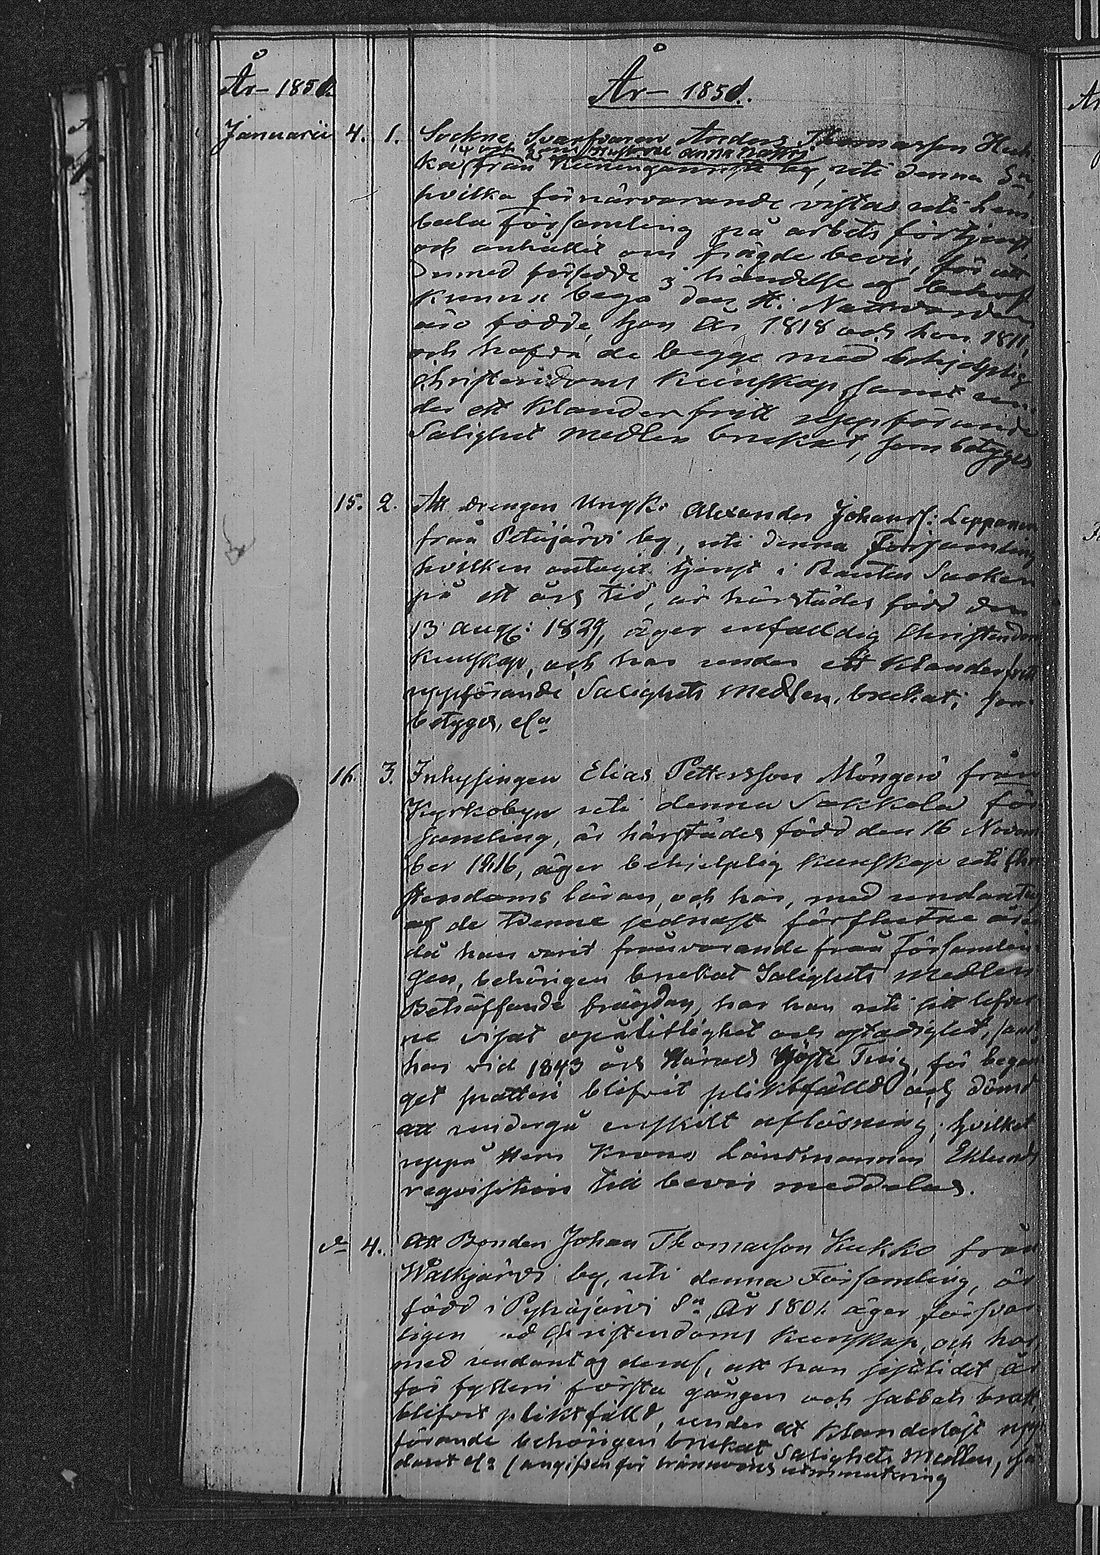 År 1851.
År 1851.
Januarii 4. 1. Sockne Svarfvaren Anders Thomasson
och hans hustru Anna
ka, från by, uti denna Sn,
hvilka förnärvarande vistas uti
församling på arbets förtjenst,
och anhållit om frägde bevis, för att
dermed försedde i händelse af behof
kunna begå den H. Nattvarden
äro födde, han år 1818 och hon 1811,
och hafva de begge med behjelplig
christendoms kunskap samt un-
der ett klanderfritt uppförande
Salighets medlen brukat, som betygas
15. 2. Att drengen Ungk. Alexander Johanss: Leppänen
från Petäjärvi by, uti denna Församling
hvilken antagit tjenst i Rautus Socken
på ett års tid, är härstädes född den
13 aug: 1829, äger enfaldig Christendoms
kunskap, och har under ett klanderfritt
uppförande Salighets medlen brukat; som
betygas,
16. 3. Inhysingen Elias Pettersson Möngerö från
Kyrkobyn uti denna Sakkola för-
samling, är härstädes född den 16 Novem-
ber 1816, äger behjelplig kunskap uti Chri-
stendoms läran, och har, med undantag
af de tvenne sednast förflutne åren
då han varit frånvarande från Församlin-
gen, behörigen brukat Salighets medlen
Beträffande frägden, har han uti sitt lefver-
ne visat opålitlighet och ostadighet, samt
har vid 1843 års Härads Höste Ting, för begån-
get snatteri blifvit pliktfälld och dömd
att undergå enskilt aflösning; hvilket
uppå Herr Krono Länsmannen Eklunds
reqvisition till bevis meddelas.
4. Att Bonden Johan Thomasson Kukko från
Walkjärvi by, uti denna Församling, är
född i Pyhäjärvi Sn År 1801. äger försvar-
ligen Christendoms kunskap, och har
med undantag deraf, att han sistlidet år
för fylleri första gången och sabbats brott
blifvit pliktfälld, under ett klanderlöst upp-
förande behörigen brukat Salighets medlen,